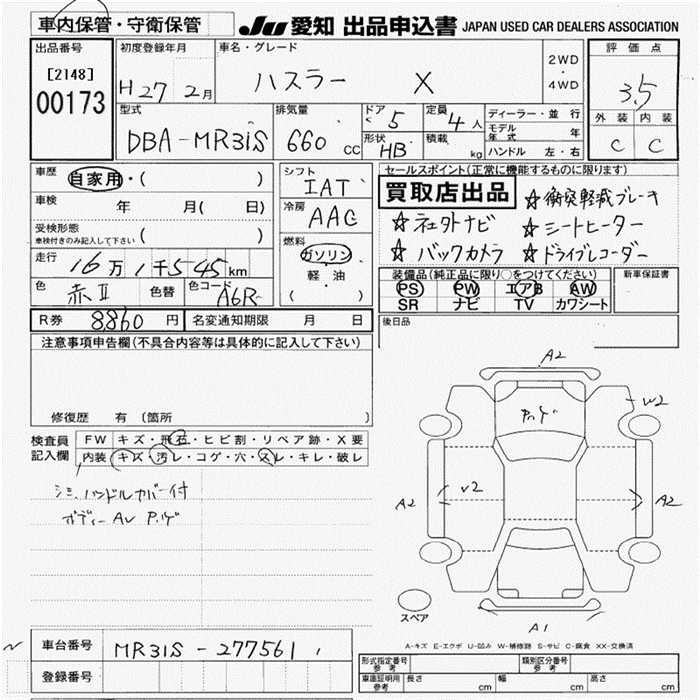 車内保管・守衛保管
JU 愛知 出品申込書 JAPAN USED CAR DEALERS ASSOCIATION
出品番号
[2148]
00173
初度登録年月
H 27 2月
車名・グレード
ハスラー X
2WD
・
4WD
評価点
3.5
外装 内装
C C
型式
DBA-MR31S
排気量
660 CC
ドア
5
形状
HB
定員
4人
積載
kg
ディーラー・並行
モデル年式 年
ハンドル 左・右
車歴
自家用・( )
車検 年 月( 日)
受検形態
車検付きのみ記入して下さい ( )
走行
16万1千545km
色
赤II
色替
色コード
A6R
シフト
IAT
冷房
AAC
燃料
ガソリン
・
軽・油
( )
セールスポイント(正常に機能するものに限ります)
買取店出品
☆衝突軽減ブレーキ
☆社外ナビ ☆シートヒーター
☆バックカメラ ☆ドライブレコーダー
装備品(純正品に限り○をつけてください)
PS PW エアB AW
SR ナビ TV カワシート
新車保証書
R券 8860円
名変通知期限 月 日
後日品
注意事項申告欄(不具合内容等は具体的に記入して下さい)
修復歴 有 〔箇所
検査員
記入欄
FW キズ・飛石・ヒビ割・リペア跡・X要
内装 キズ・汚レ・コゲ・穴・スレ・キレ・破レ
シミ、ハンドルカバー付
ボディーAU
A2
W2
A2
V2
A2
スペア
A1
A-キズ E-エクボ U-凹み W-補修跡 S-サビ C-腐食 XX-交換済
車台番号 MR31S-277561
登録番号
形式指定番号
参考
類別区分番号
参考
車庫証明用
参考
長さ cm 幅 cm 高さ cm